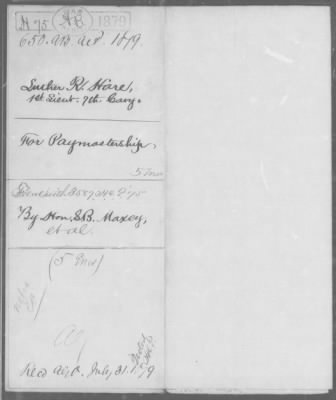 H 75 AB 1879
650. AB. ACP. 1879.
Luther R. Hare,
1st Lieut. 7th Cavy.
For Paymastership,
5 Incs
By Hon. S.B. Maxey,
et al.
(5 Incs)
Rec'd A.G.O. July 31. 1879